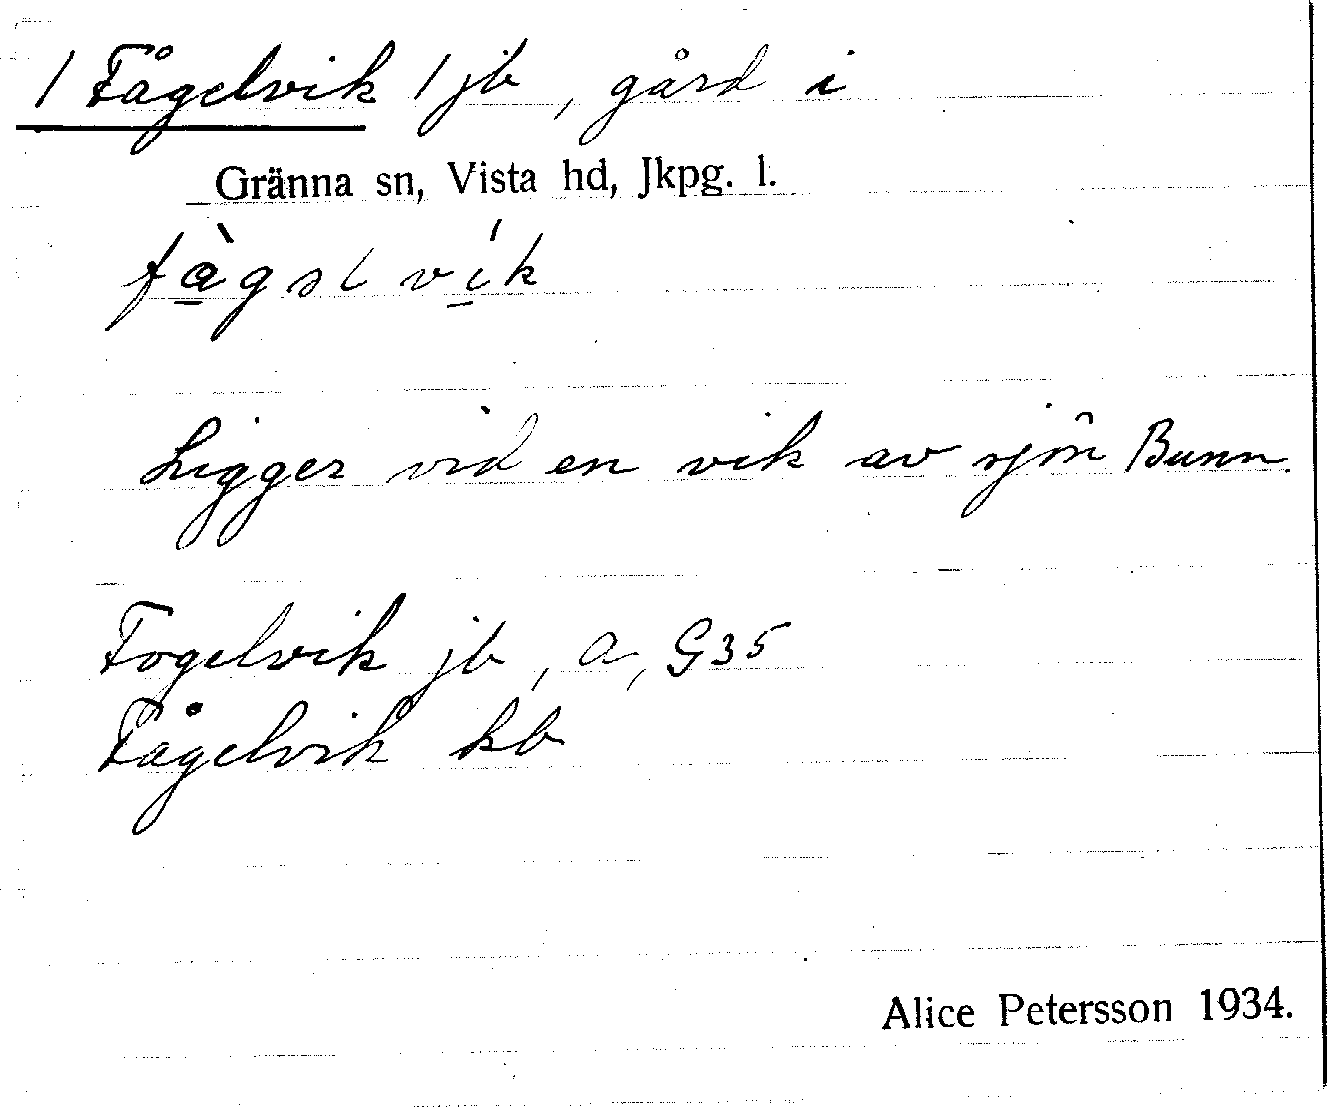 / Fågelvik / jb, gård i
Gränna sn, Vista hd, Jkpg. l.
fàgəl vík
Ligger vid en vik av sjön Bunn.
Fogelvik jb, a, G35
Fågelvik kb
Alice Petersson 1934.